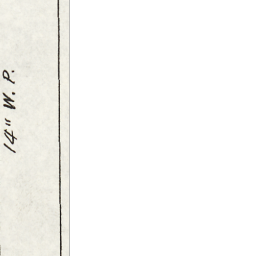 14" W. P.